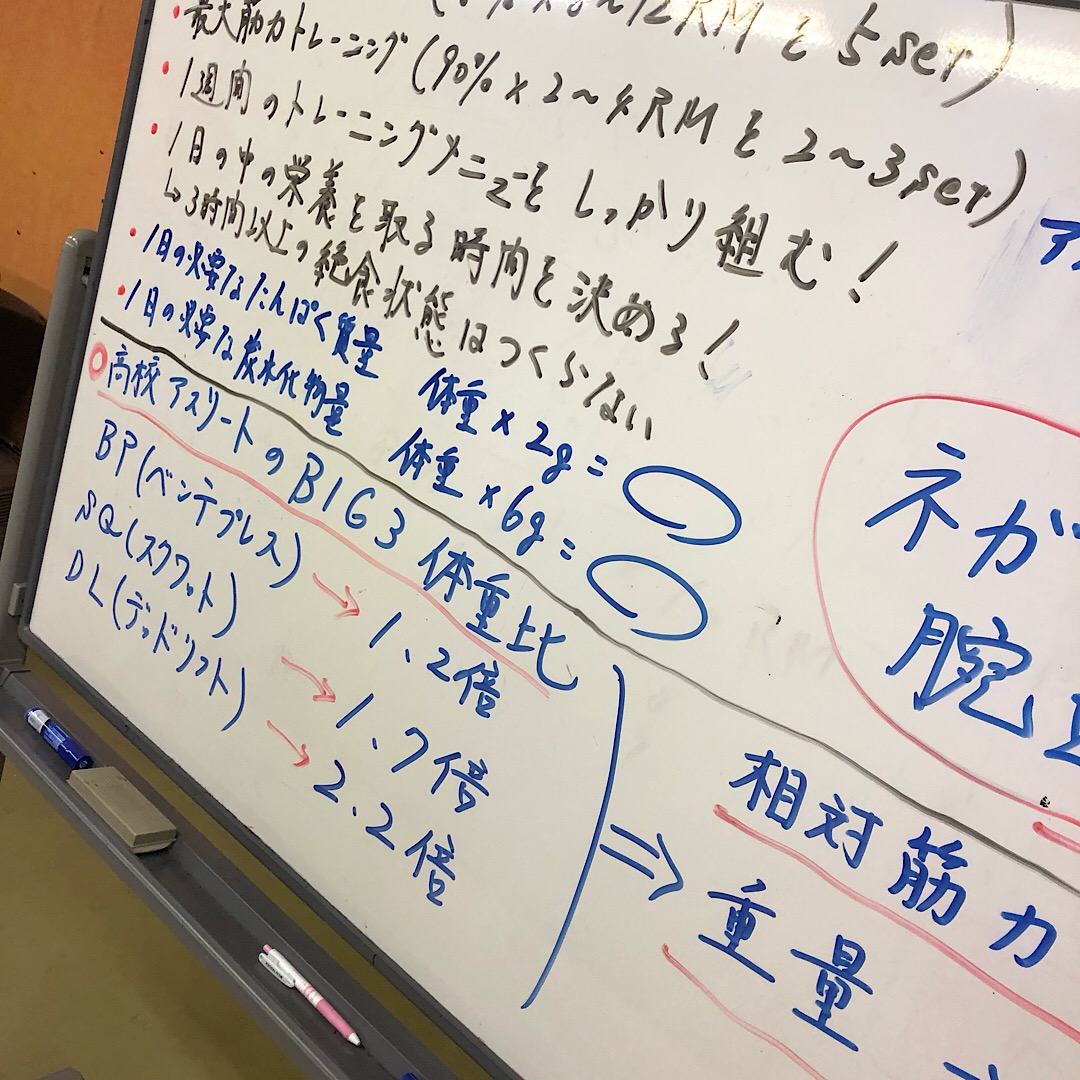 RMを5set)
・最大筋力トレーニング(90%×2~4RMを2~3set)
・1週間のトレーニングメニューをしっかり組む!
・1日の中の栄養を取る時間を決める!
↳3時間以上の絶食状態はつくらない
・1日の必要なたんぱく質量 体重×2g=◯
・1日の必要な炭水化物量 体重×6g=◯
◎高校アスリートのBIG3 体重比
BP(ベンチプレス)→1.2倍
SQ(スクワット)→1.7倍
DL(デッドリフト)→2.2倍
⇒相対筋力
重量
ネガ
腕